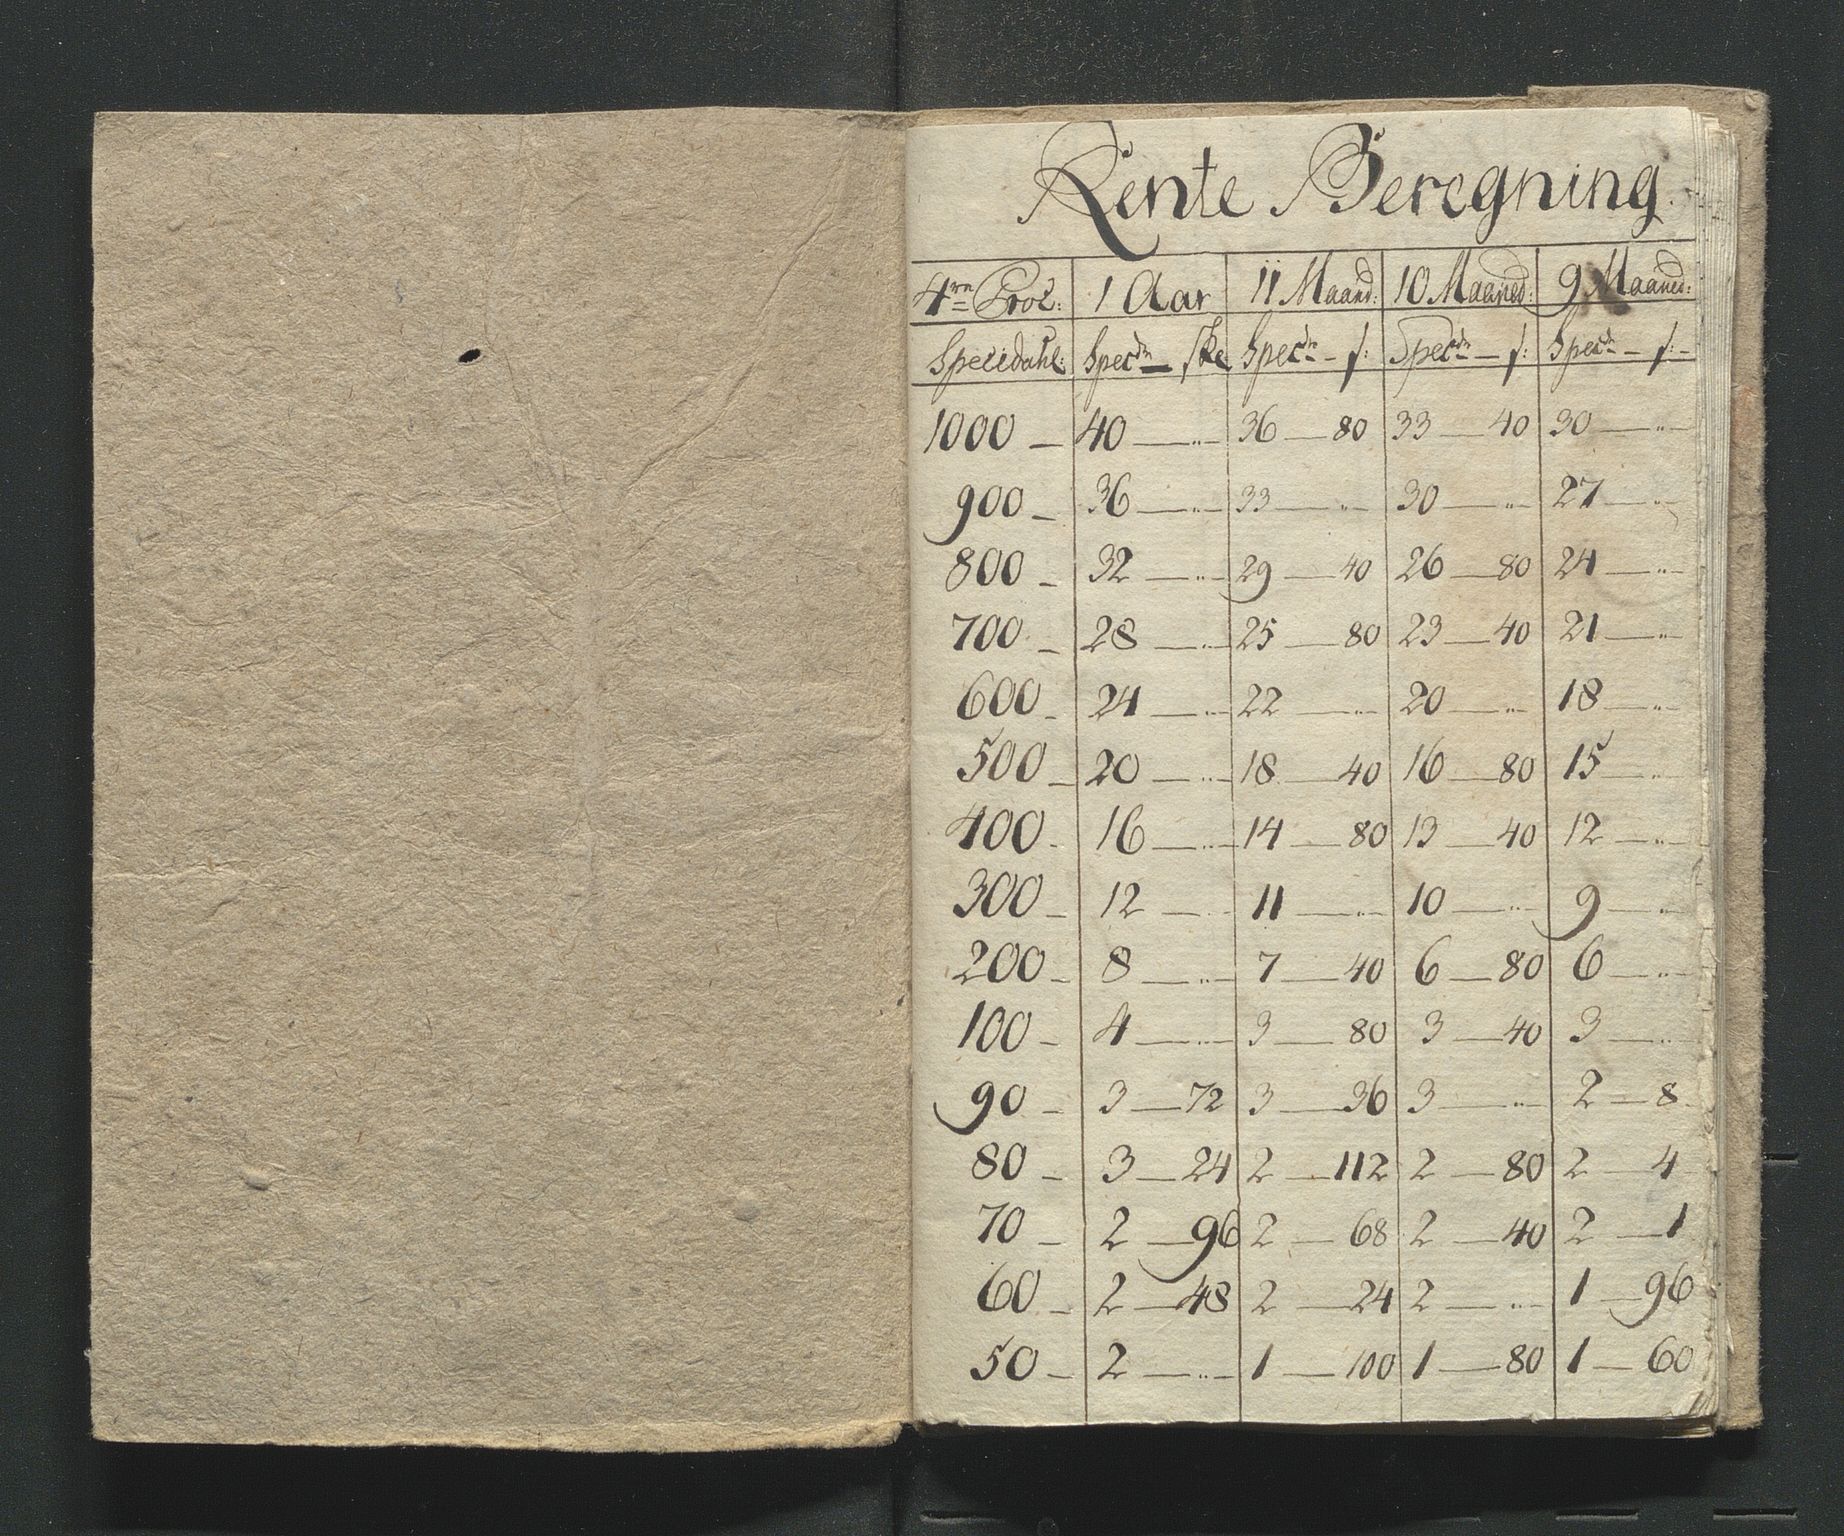 Rente Beregning.
4re Proc: 1 Aar 11 Maand: 10 Maaned: 9 Maaned:
Speciedahl: Specdr — ske Specdr — s: Specdr — s: Specdr — s:
1000 — 40 — „ 36 — 80 33 — 40 30 — „
900 — 36 — „ 33 — „ 30 — „ 27 — „
800 — 32 — „ 29 — 40 26 — 80 24 — „
700 — 28 — „ 25 — 80 23 — 40 21 — „
600 — 24 — „ 22 — „ 20 — „ 18 — „
500 — 20 — „ 18 — 40 16 — 80 15 — „
400 — 16 — „ 14 — 80 13 — 40 12 — „
300 — 12 — „ 11 — „ 10 — „ 9 — „
200 — 8 — „ 7 — 40 6 — 80 6 — „
100 — 4 — „ 3 — 80 3 — 40 3 — „
90 — 3 — 72 3 — 36 3 — „ 2 — 8
80 — 3 — 24 2 — 112 2 — 80 2 — 4
70 — 2 — 96 2 — 68 2 — 40 2 — 1
60 — 2 — 48 2 — 24 2 — „ 1 — 96
50 — 2 — „ 1 — 100 1 — 80 1 — 60